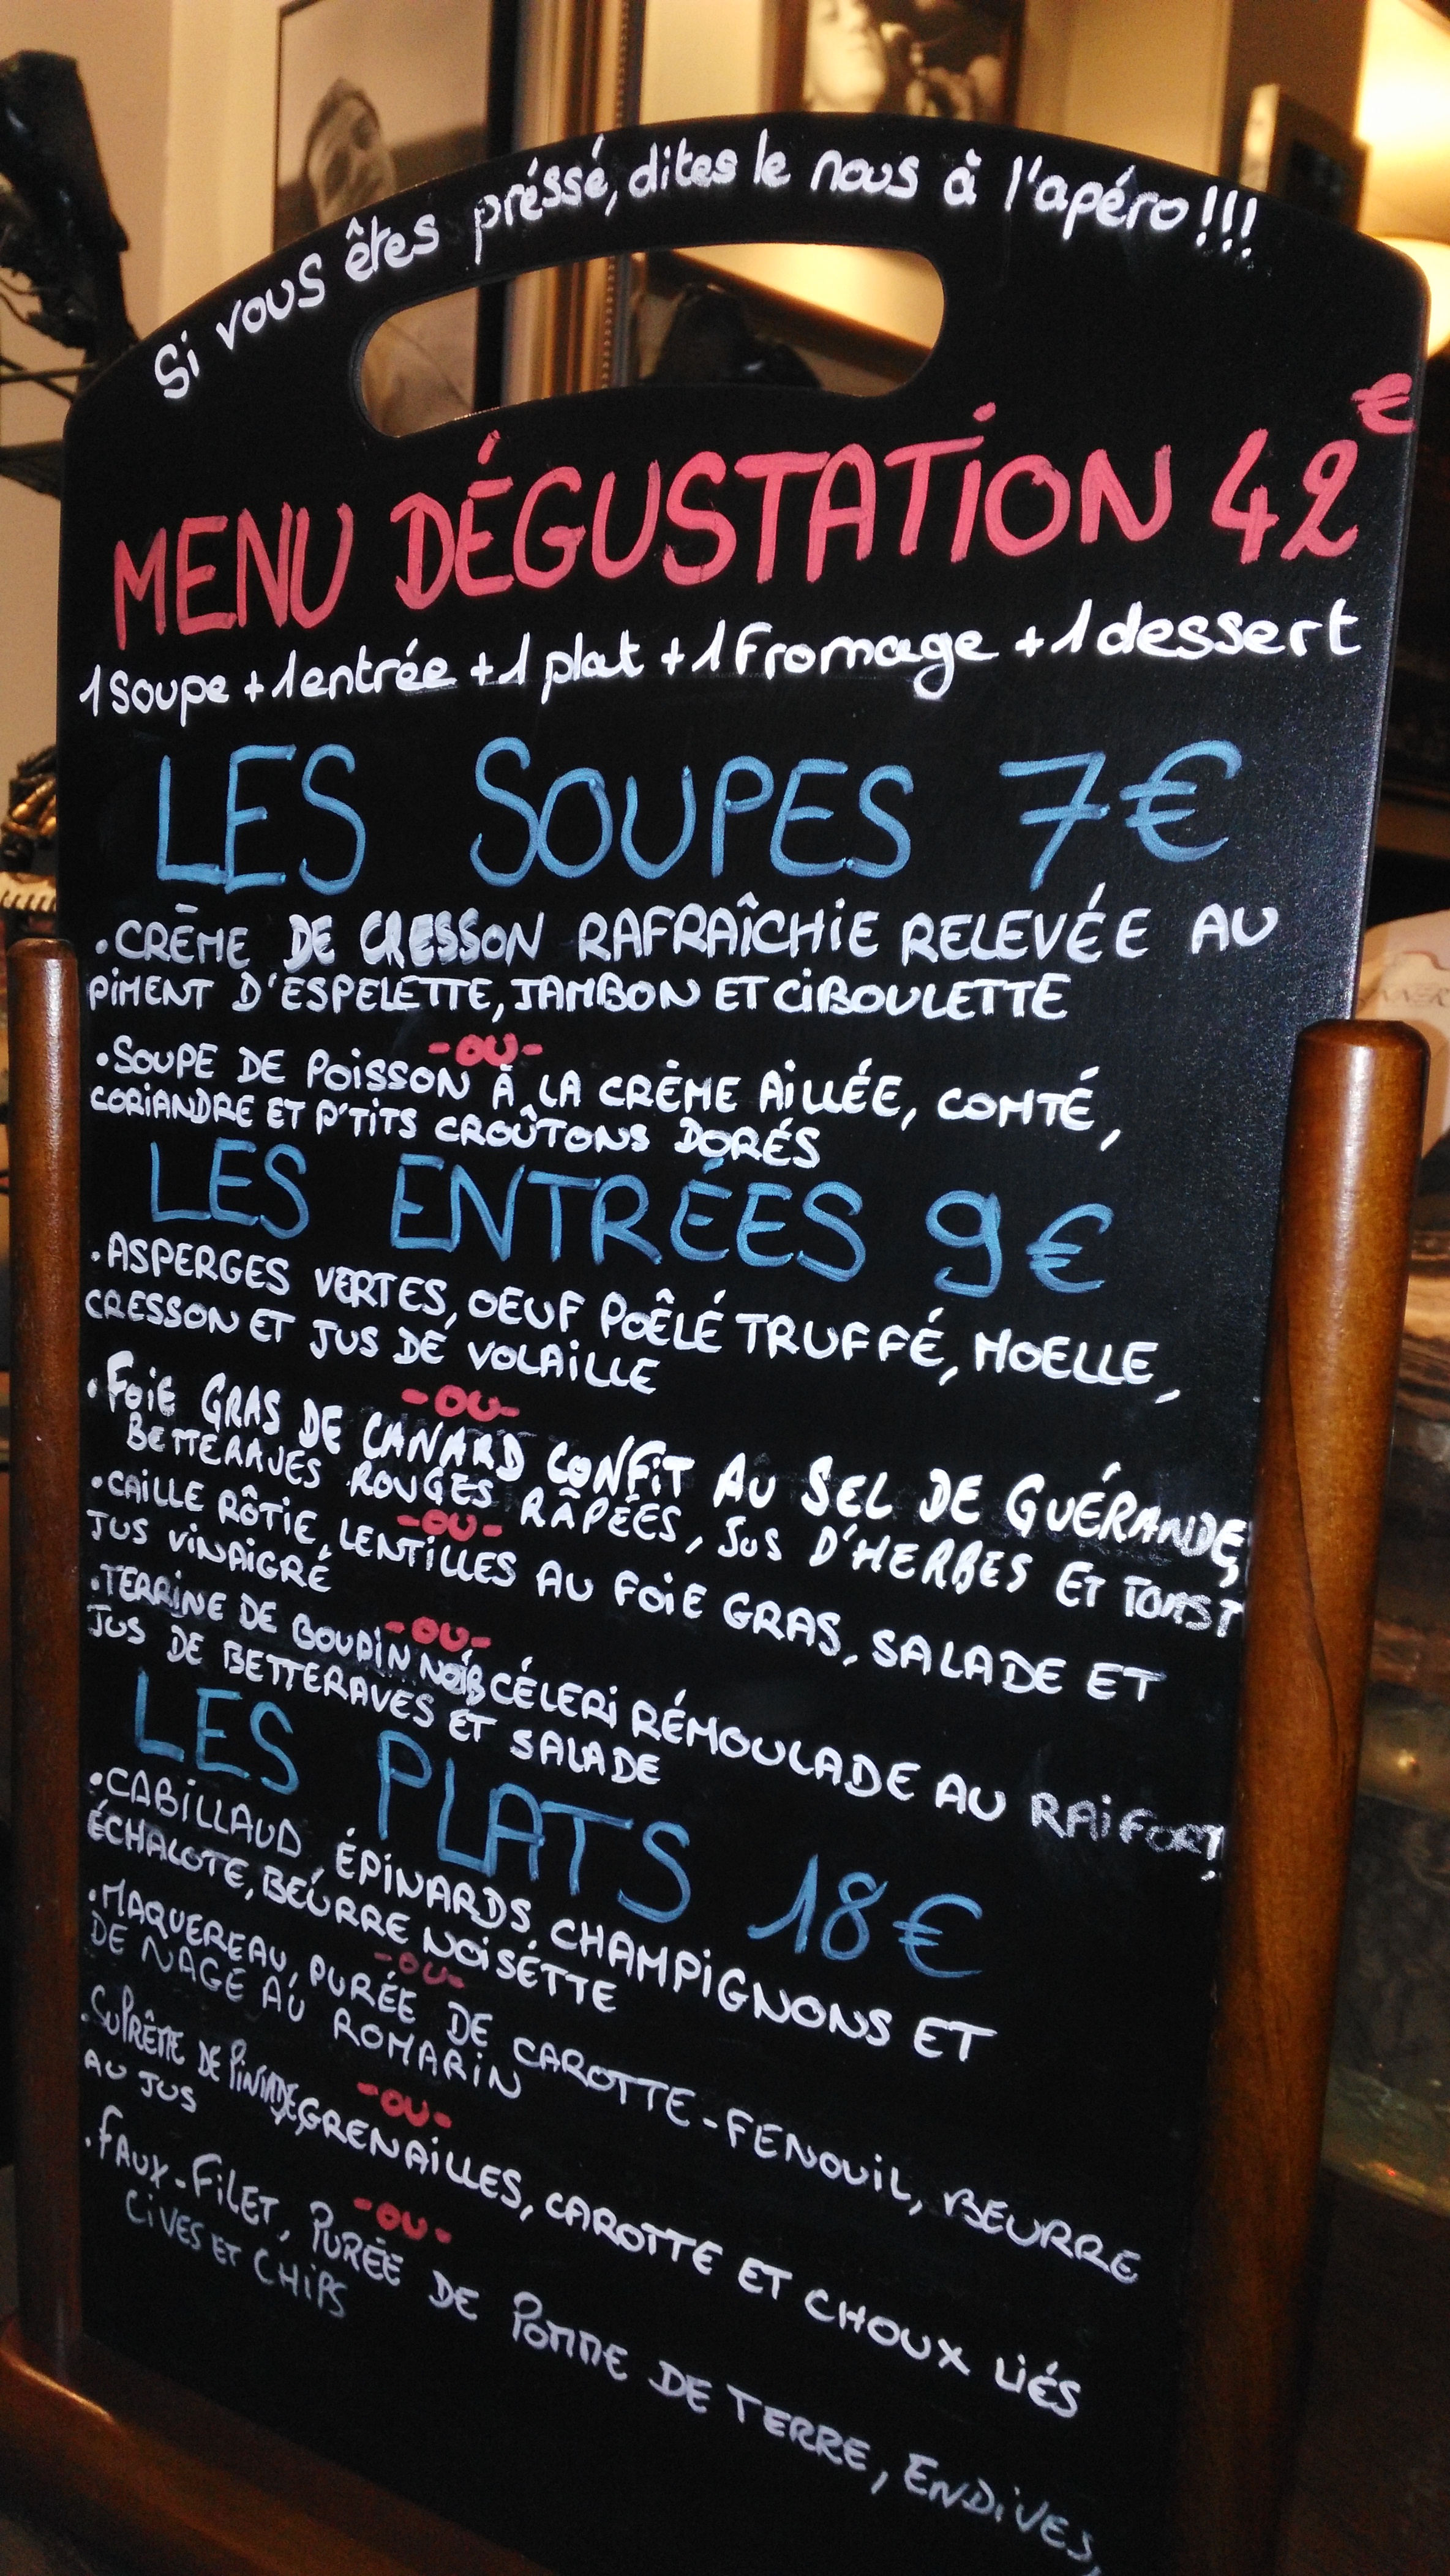 Si vous êtes préssé, dites le nous à l'apéro!!!
MENU DÉGUSTATION 42€
1 Soupe + 1 entrée + 1 plat + 1 Fromage + 1 dessert
LES SOUPES 7€
.CRÈME DE CRESSON RAFRAÎCHIE RELEVÉE AU
PIMENT D'ESPELETTE, JAMBON ET CIBOULETTE
-OU-
.SOUPE DE POISSON À LA CRÈME AILLÉE, COMTÉ,
CORIANDRE ET P'TITS CROÛTONS DORÉS
LES ENTRÉES 9€
.ASPERGES VERTES, OEUF POÊLÉ TRUFFÉ, MOELLE,
CRESSON ET JUS DE VOLAILLE
-OU-
.FOIE GRAS DE CANARD CONFIT AU SEL DE GUÉRANDE,
BETTERAVES ROUGES RÂPÉES, JUS D'HERBES ET TOAST
-OU-
.CAILLE RÔTIE, LENTILLES AU FOIE GRAS, SALADE ET
JUS VINAIGRÉ
-OU-
.TERRINE DE BOUDIN NOIR, CÉLERI RÉMOULADE AU RAIFORT,
JUS DE BETTERAVES ET SALADE
LES PLATS 18€
.CABILLAUD, ÉPINARDS, CHAMPIGNONS ET
ÉCHALOTE, BEURRE NOISÉTTE
-OU-
.MAQUEREAU, PURÉE DE CAROTTE-FENOUIL, BEURRE
DE NAGE AU ROMARIN
-OU-
.SUPRÊME DE PINTADE, GRENAILLES, CAROTTE ET CHOUX LIÉS
AU JUS
-OU-
.FAUX-FILET, PURÉE DE POMME DE TERRE, ENDIVES,
CIVES ET CHIPS